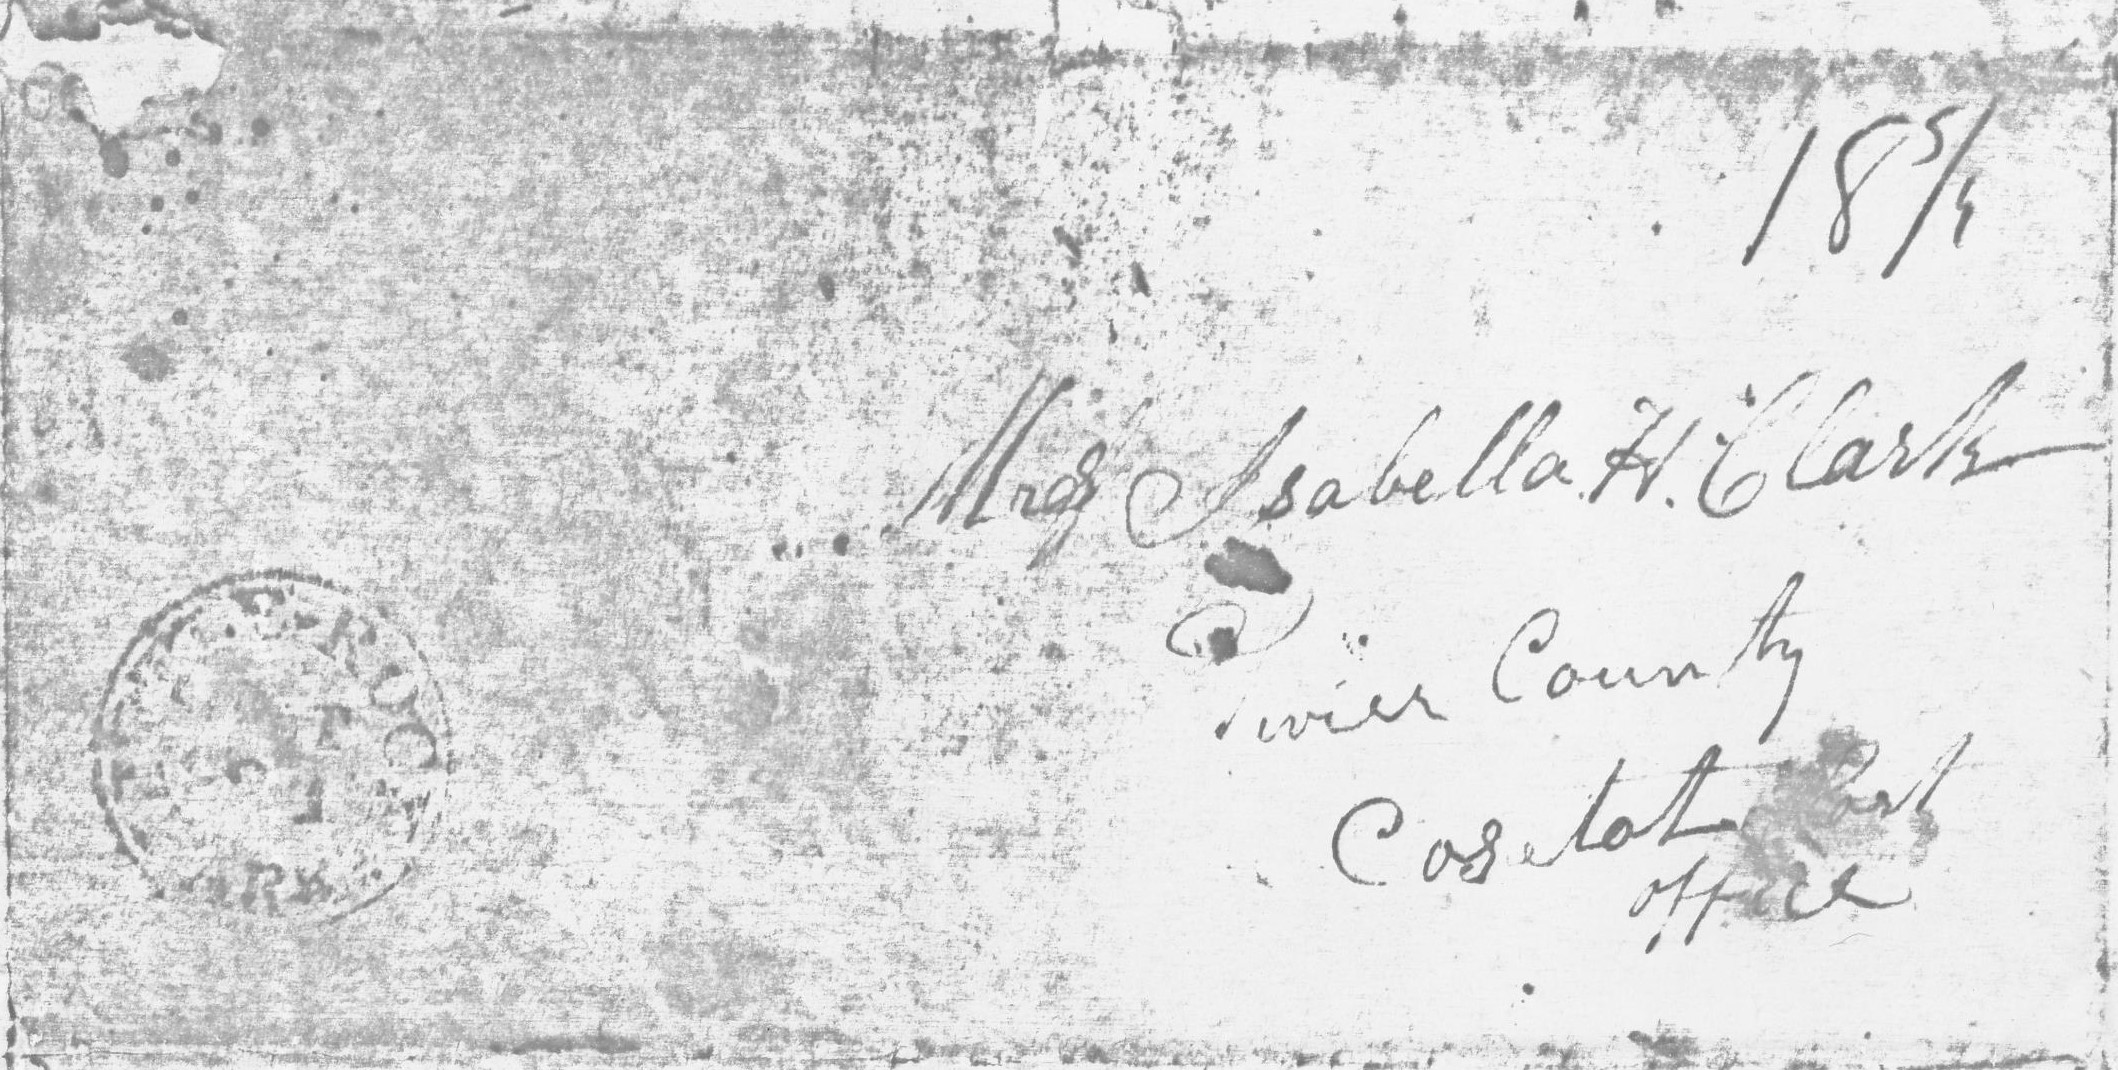 18 3/4
Mrs Isabella H. Clark
Sevier County
Cosetot Post
office
ROC
ARK